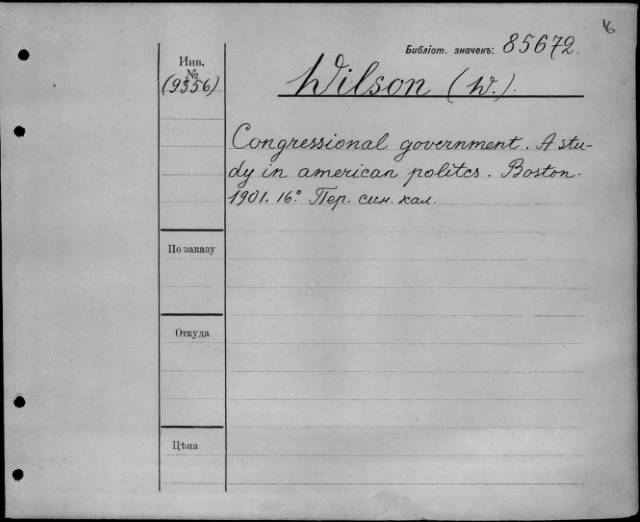 Библіот. значекъ: 85672.
Инв.
№
(9356)
Wilson (W.).
Congressional government. A stu-
dy in american politcs. Boston.
1901. 16° Пер. син. кал.
По заказу
Откуда
Цѣна